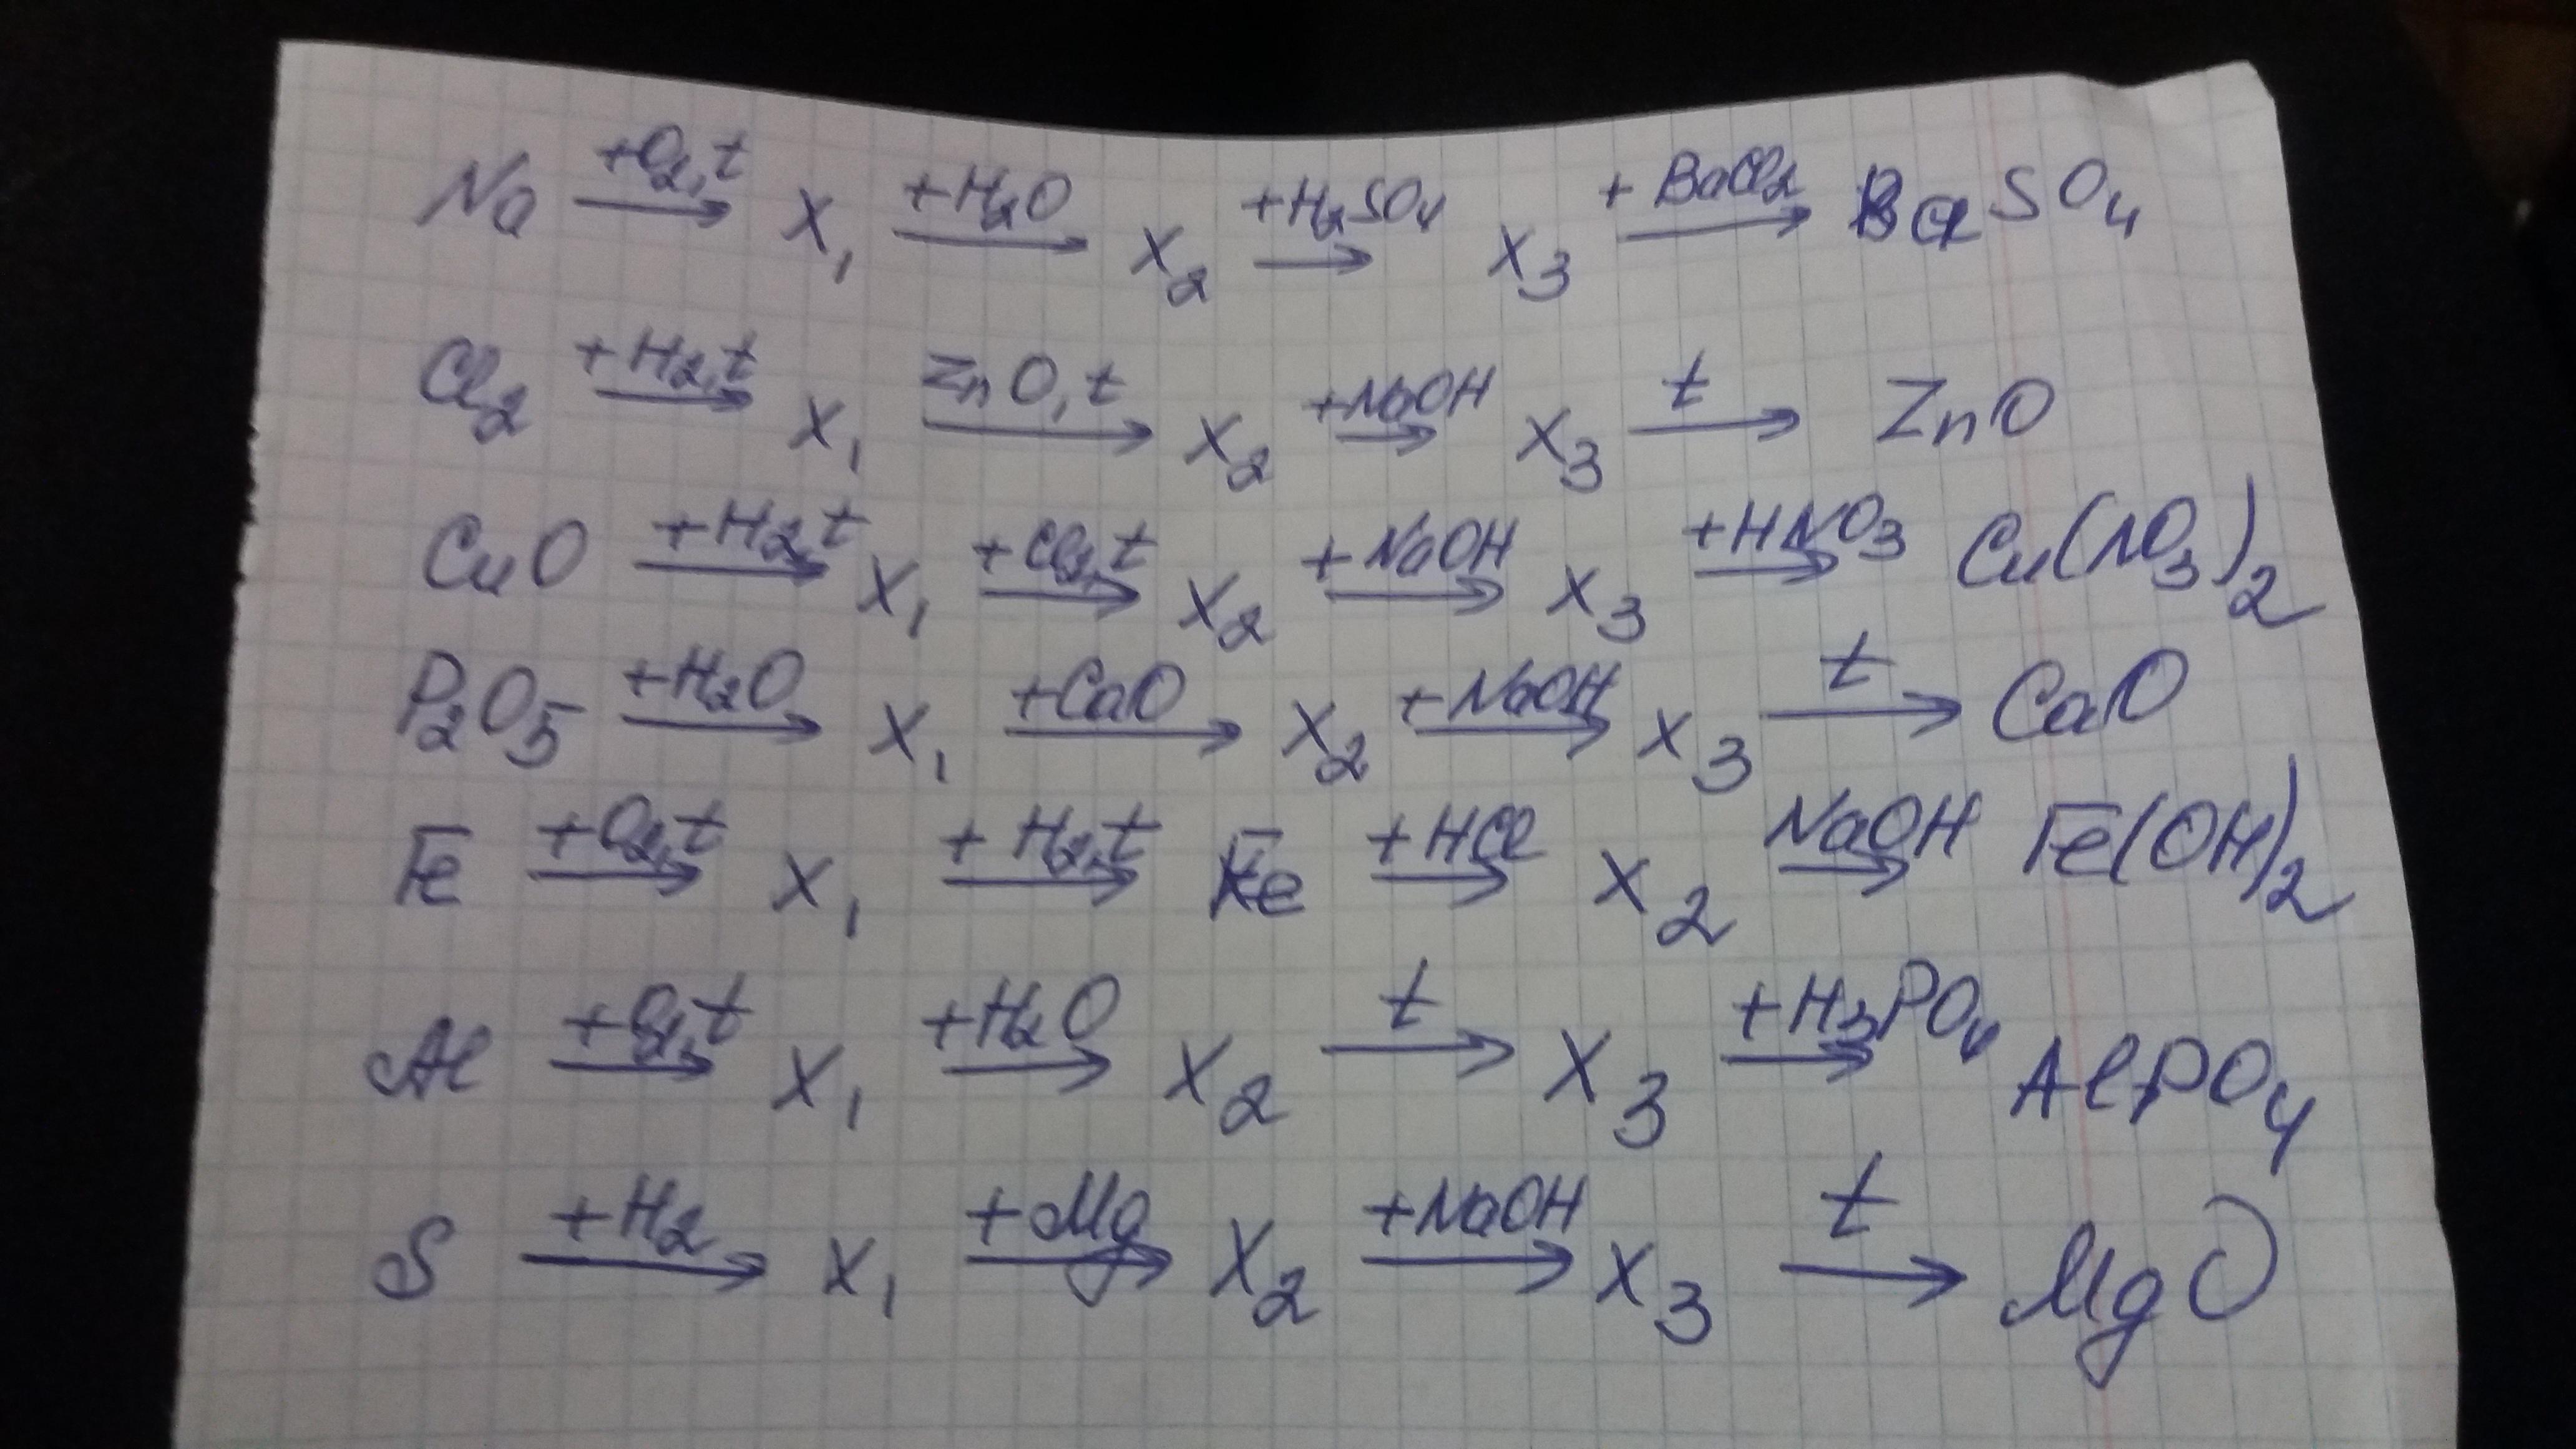 Na +O2,t → X1 +H2O → X2 +H2SO4 → X3 + BaCl2 → BaSO4
Cl2 +H2,t → X1 ZnO,t → X2 +NaOH → X3 t → ZnO
CuO +H2,t → X1 +Cl2,t → X2 +NaOH → X3 +HNO3 → Cu(NO3)2
P2O5 +H2O → X1 +CaO → X2 +NaOH → X3 t → CaO
Fe +O2,t → X1 + H2,t → Fe +HCl → X2 NaOH → Fe(OH)2
Al +O2,t → X1 +H2O → X2 t → X3 +H3PO4 → AlPO4
S +H2 → X1 +Mg → X2 +NaOH → X3 t → MgO